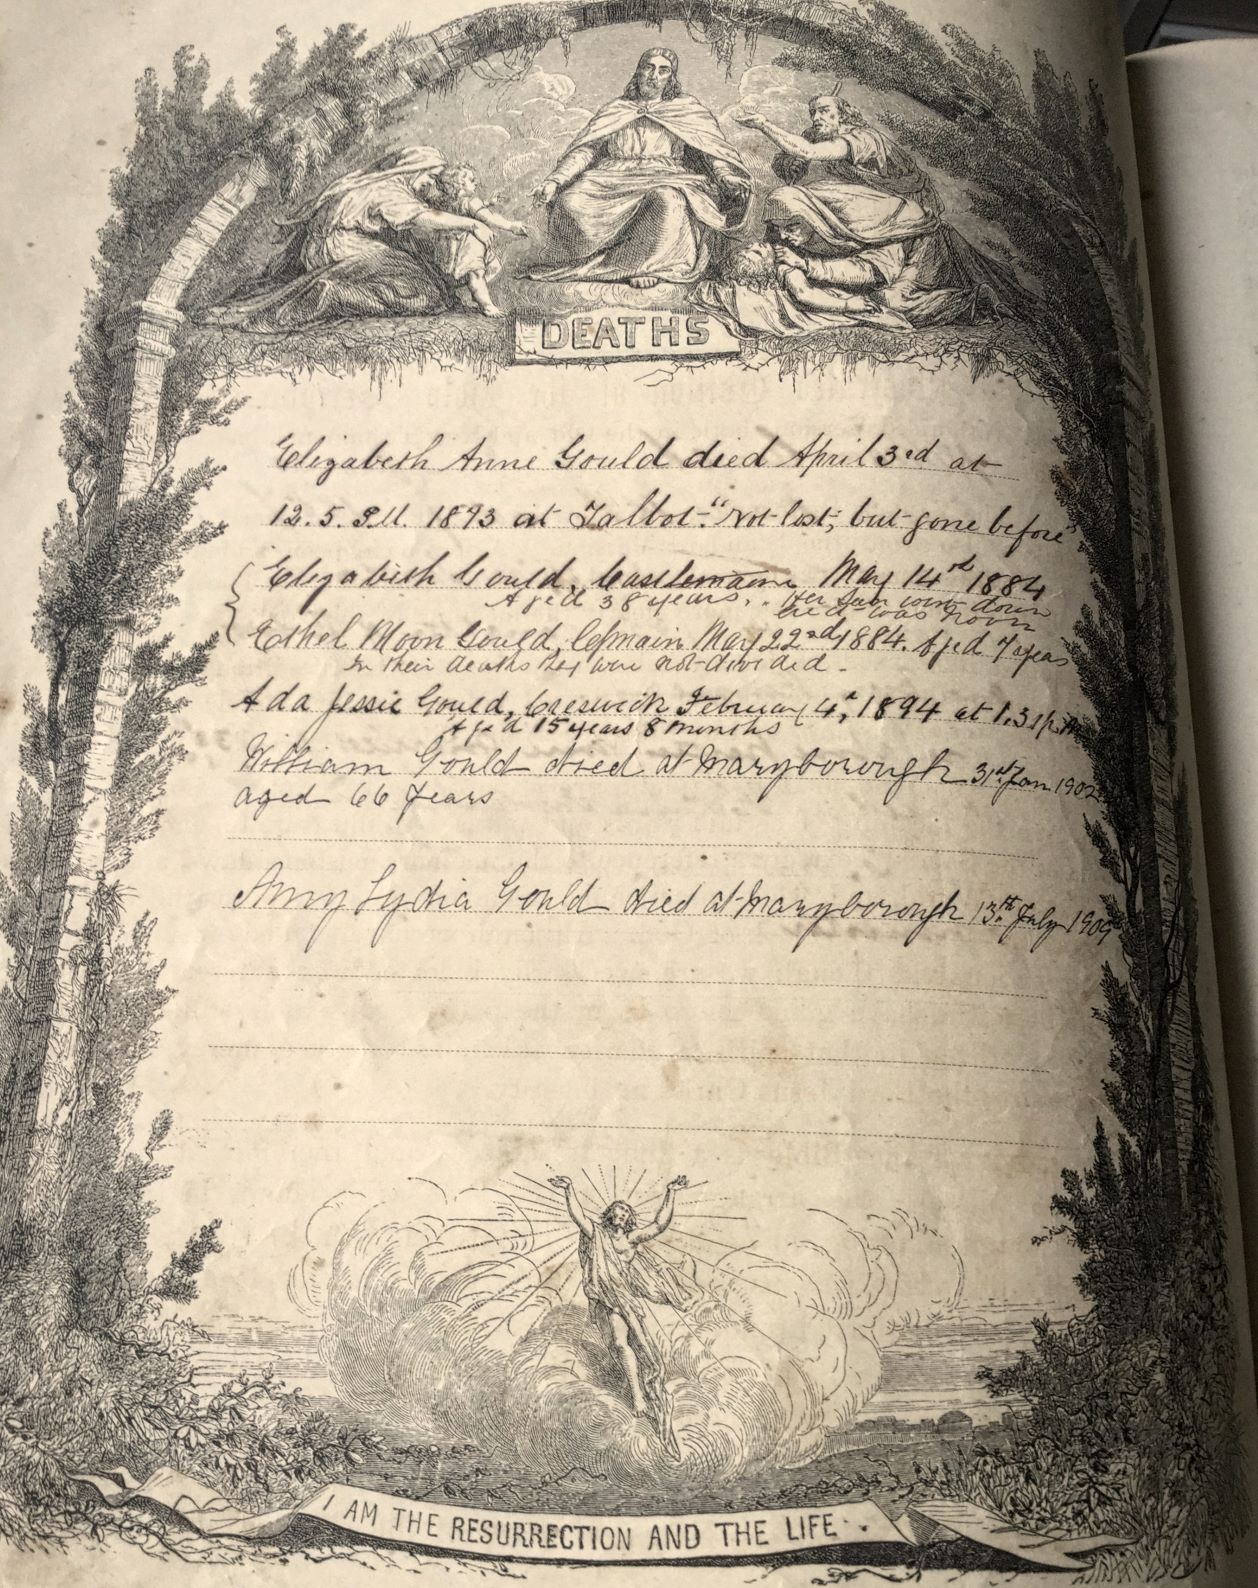 DEATHS
Elizabeth Anne Gould died April 3rd at
12. 5. P.M. 1893 at Talbot. "Not lost, but gone before"
Elizabeth Gould, Castlemaine May 14th 1884
Aged 38 years. Her Sun went down
while it was noon
Ethel Moon Gould, C'main May 22nd 1884. Aged 7 years
In their deaths they were not divided.
Ada Jessie Gould, Creswick February 4th, 1894 at
Aged 15 years 8 months
William Gould died at Maryborough 31st Jan 1902
aged 66 years
Amy Lydia Gould died at Maryborough 13th July 1909
I AM THE RESURRECTION AND THE LIFE.